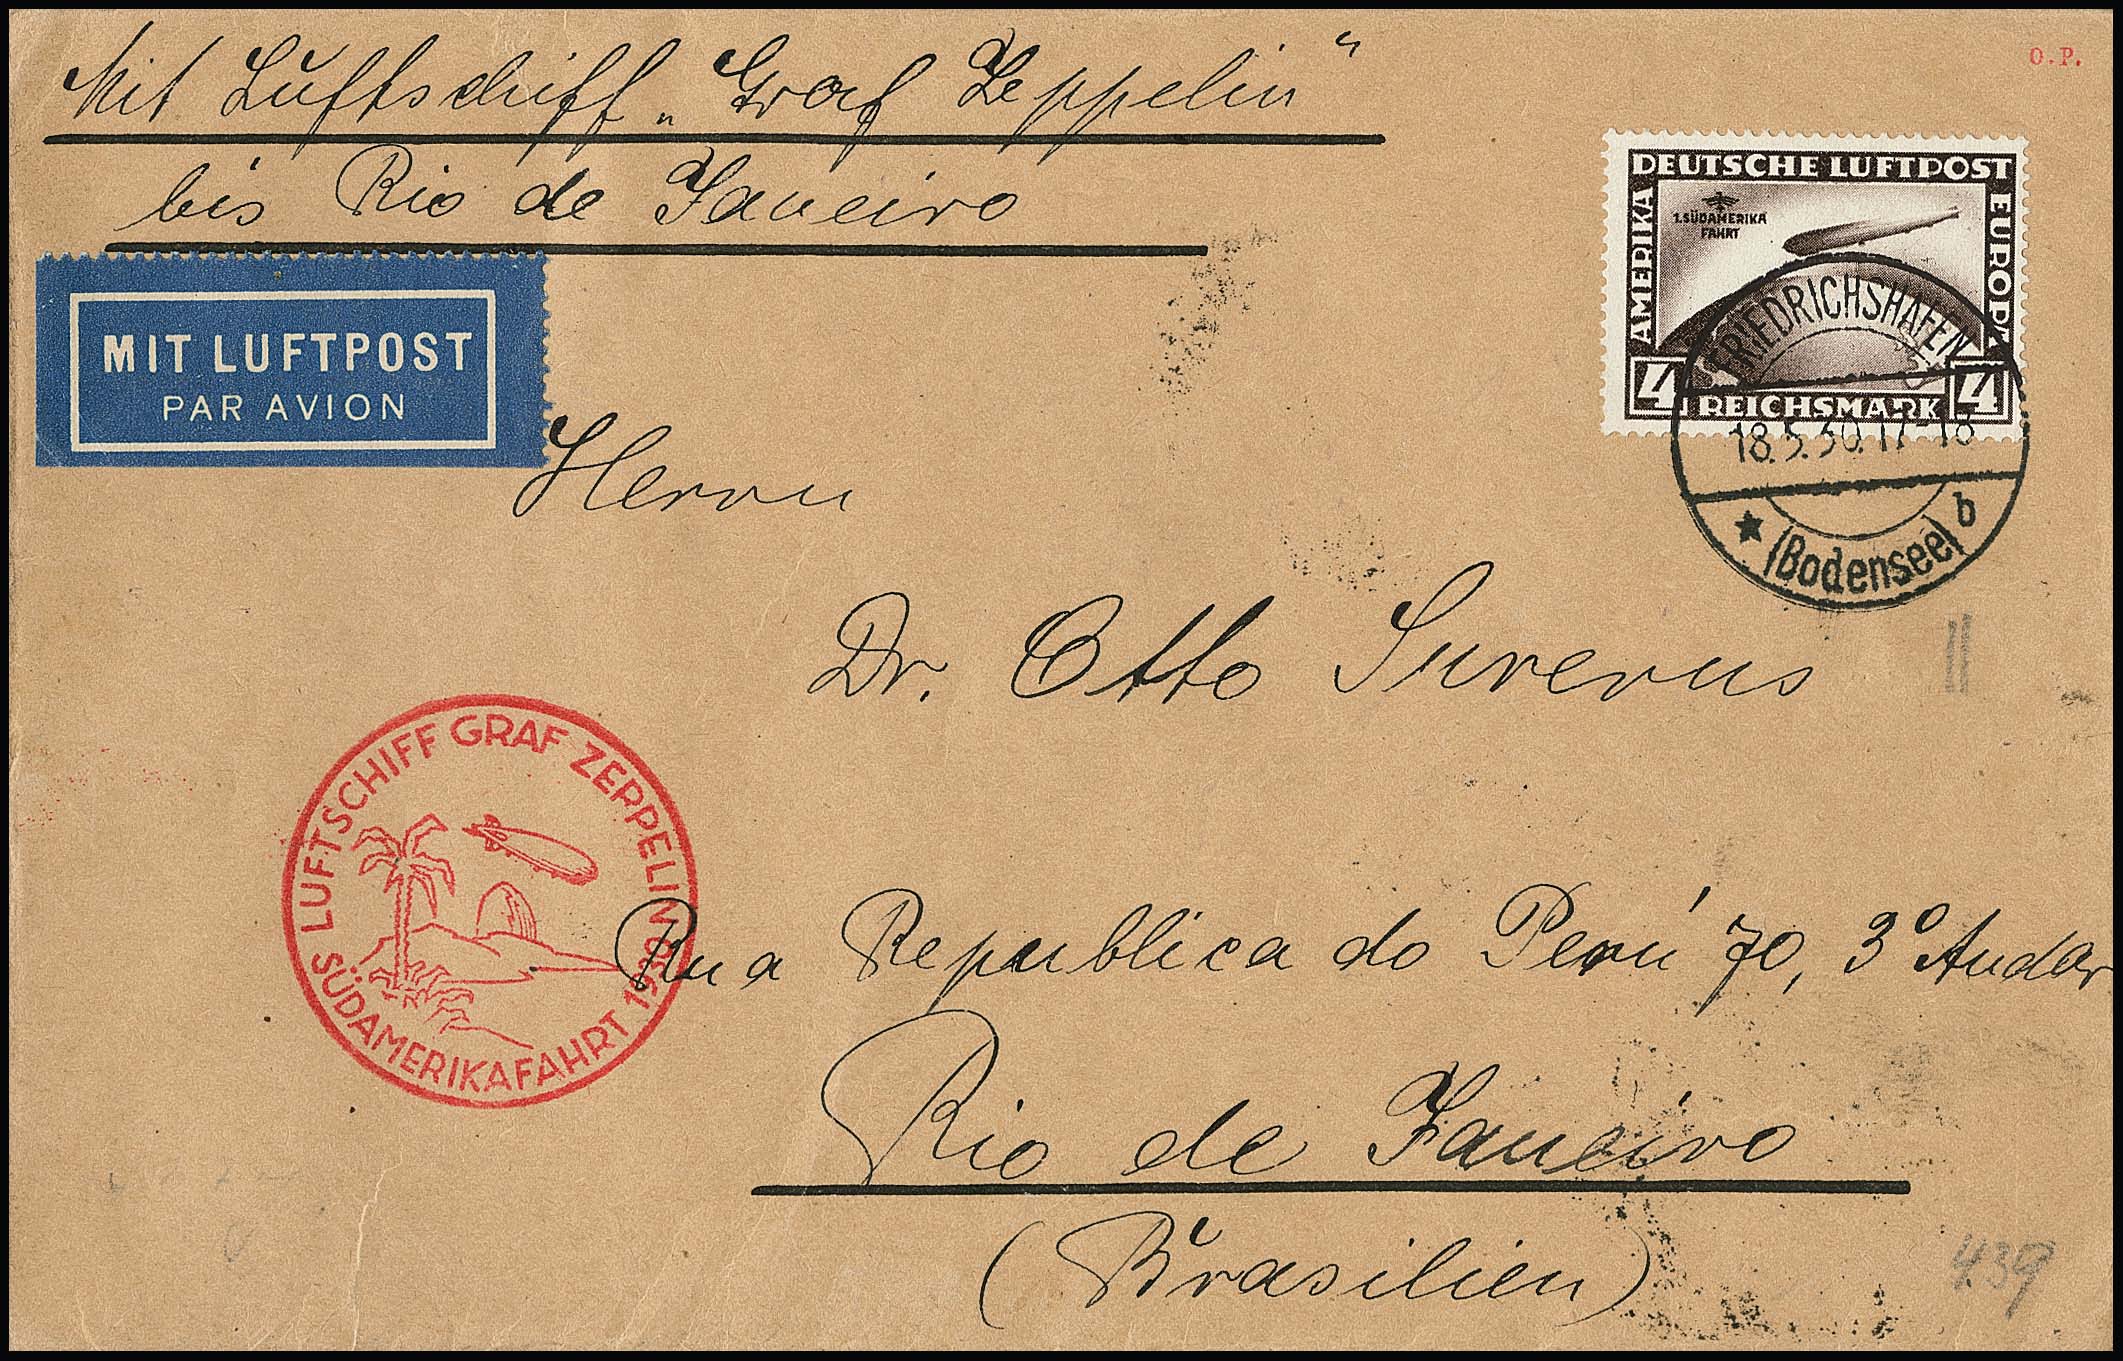 Mit Luftschiff „Graf Zeppelin“
bis Rio de Janeiro
O.P.
DEUTSCHE LUFTPOST
AMERIKA
EUROPA
1. SÜDAMERIKA
FAHRT
4 REICHSMARK 4
FRIEDRICHSHAFEN
18.5.30. 17-18
(Bodensee) b
MIT LUFTPOST
PAR AVION
Herrn
Dr. Otto Surerus
LUFTSCHIFF GRAF ZEPPELIN
SÜDAMERIKAFAHRT 1930
Rua Republica do Perú 70, 3º Andar
Rio de Janeiro
(Brasilien)
439